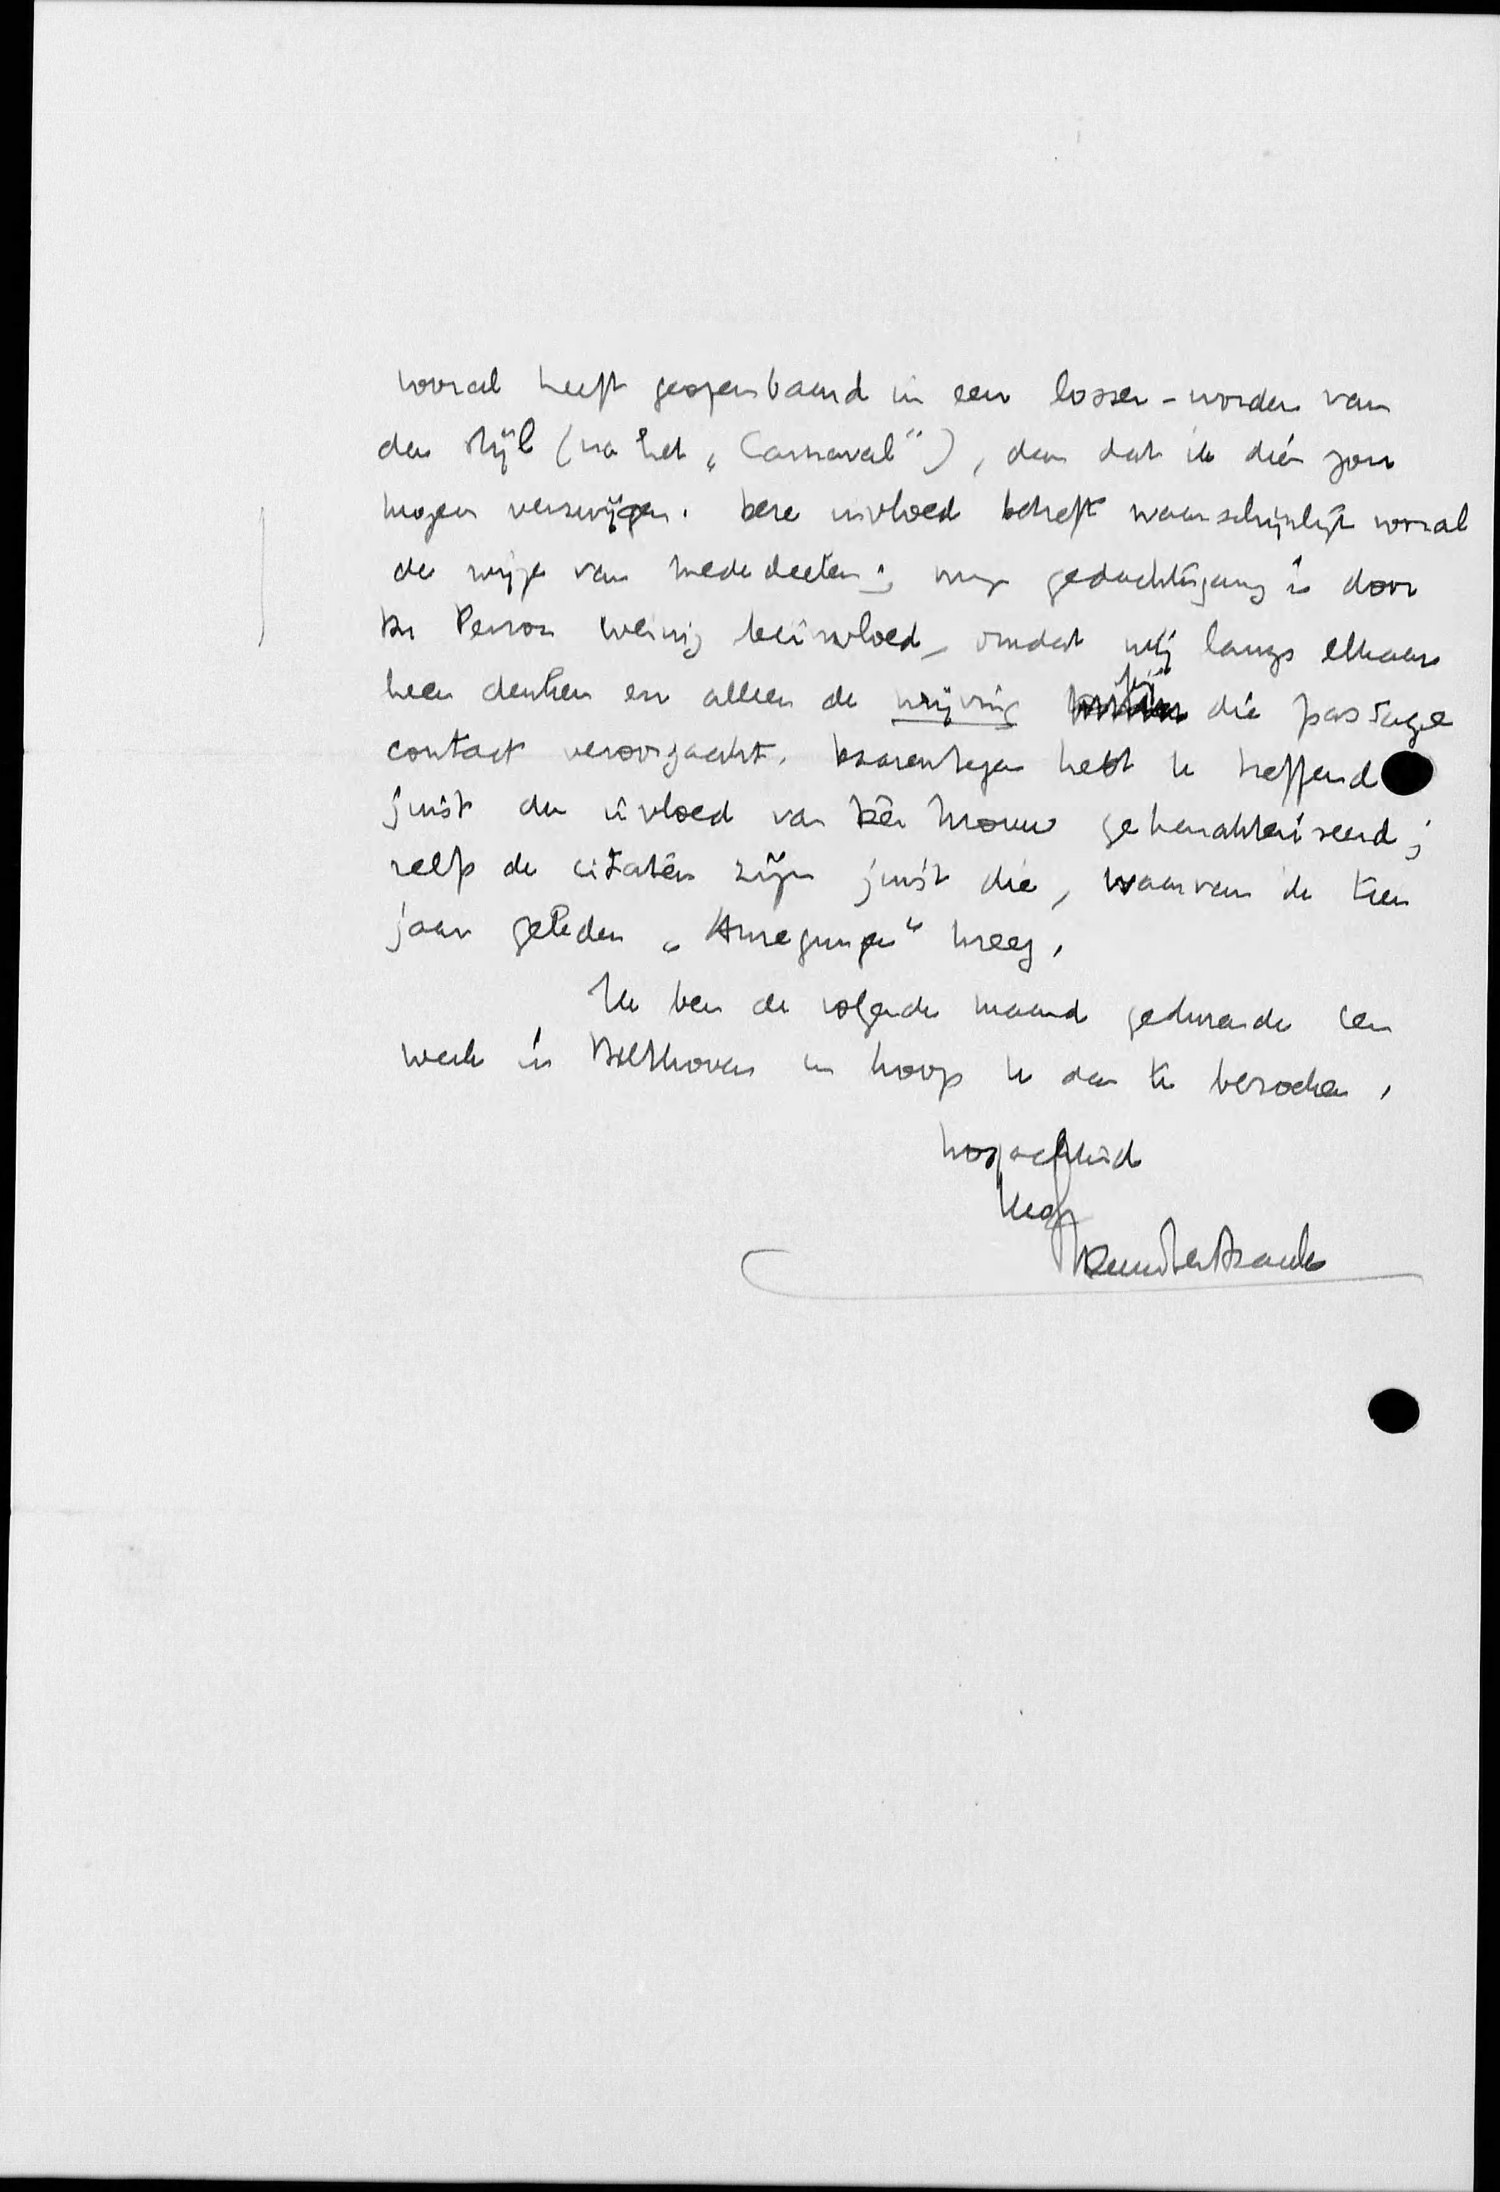 vooral heeft geopenbaard in een losser-worden van
den stijl (na het „Carnaval"), dan dat ik dien zou
mogen verzwijgen. Deze invloed betreft waarschijnlijk vooral
de wijze van mededeelen; mijn gedachtegang is door
Du Perron weinig beïnvloed, omdat wij langs elkaar
heen denken en alleen de wrijving bij die passage
contact veroorzaakt. Daarentegen hebt U treffend
juist den invloed van Dèr Mouw gekarakteriseerd;
zelfs de citaten zijn juist die, waarvan ik tien
jaar geleden „Anregungen" kreeg.
Ik ben de volgende maand gedurende een
week in Bilthoven en hoop U dan te bezoeken.
hoogachtend
Uw
Menno ter Braak